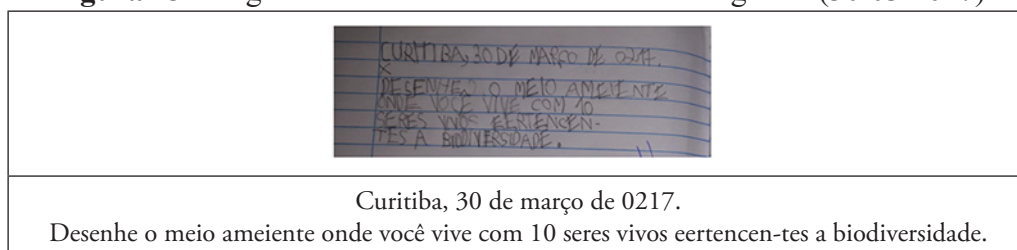 CURITIBA, 30 DE MARÇO DE 0217.
X
DESENHE O MEIO AMEIENTE
ONDE VOCÊ VIVE COM 10
SERES VIVOS EERTENCEN-
TES A BIODIVERSIDADE.
Curitiba, 30 de março de 0217.
Desenhe o meio ameiente onde você vive com 10 seres vivos eertencen-tes a biodiversidade.